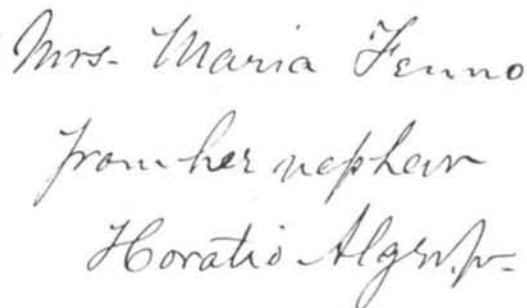 Mrs. Maria Fenno
from her nephew
Horatio Alger, Jr.